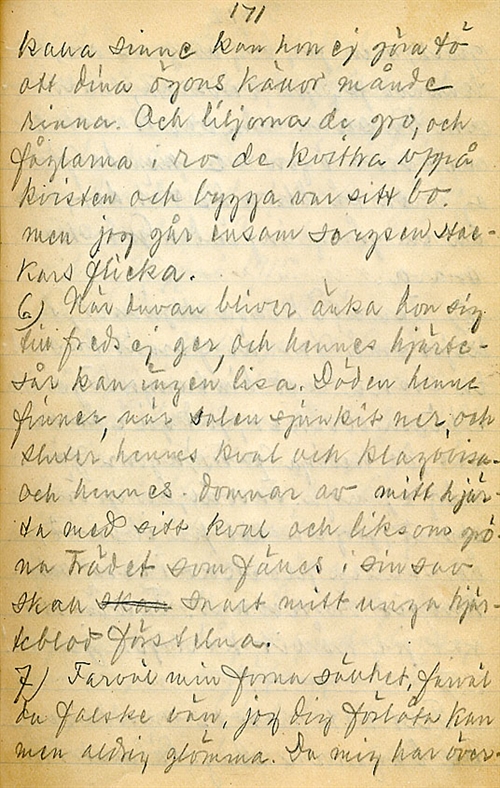 171
kalla sinne kan hon ej göra tö
att dina ögons källor månde
rinna. Och liljorna de gro, och
fåglarna i ro de kvittra uppå
kvisten och bygga var sitt bo.
men jag går ensam sorgsen stac-
kars flicka.
6) När duvan bliver änka hon sig
till freds ej ger, och hennes hjärte-
sår kan ingen lisa. Döden henne
finner, när solen sjunkit ner, och
slutar hennes kval och klagovisa.
och hennes. domnar av mitt hjär-
ta med sitt kval och liksom grö-
na trädet som fänes i sin sav
skall skall snart mitt unga hjär-
teblod förstelna.
7) Farväl min forna sällhet, farväl
du falske vän, jag dig förlåta kan
men aldrig glömma. Du mig har över-